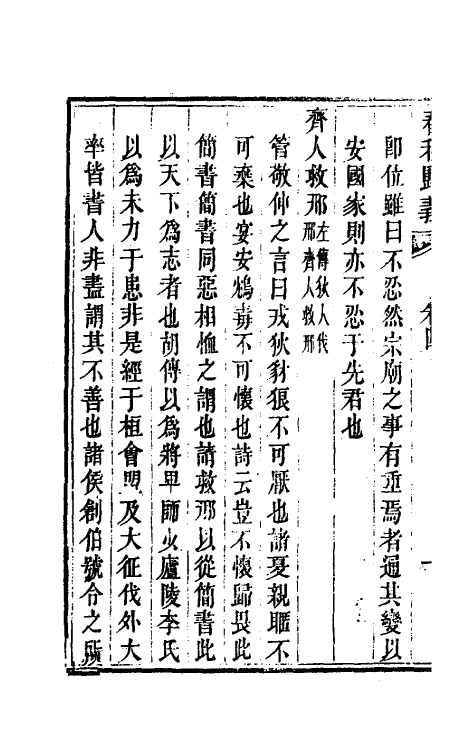 春秋歸義 卷四 一
卽位雖曰不忍然宗廟之事有重焉者通其變以
安國家則亦不忍于先君也
齊人救邢左傳狄人伐邢齊人救邢
管敬仲之言曰戎狄豺狼不可厭也諸夏親暱不
可棄也宴安鴆毒不可懷也詩云豈不懷歸畏此
簡書簡書同惡相恤之謂也請救邢以從簡書此
以天下爲志者也胡傳以爲將卑師少廬陵李氏
以爲未力于患非是經于桓會盟及大征伐外大
率皆書人非盡謂其不善也諸侯創伯號令之所